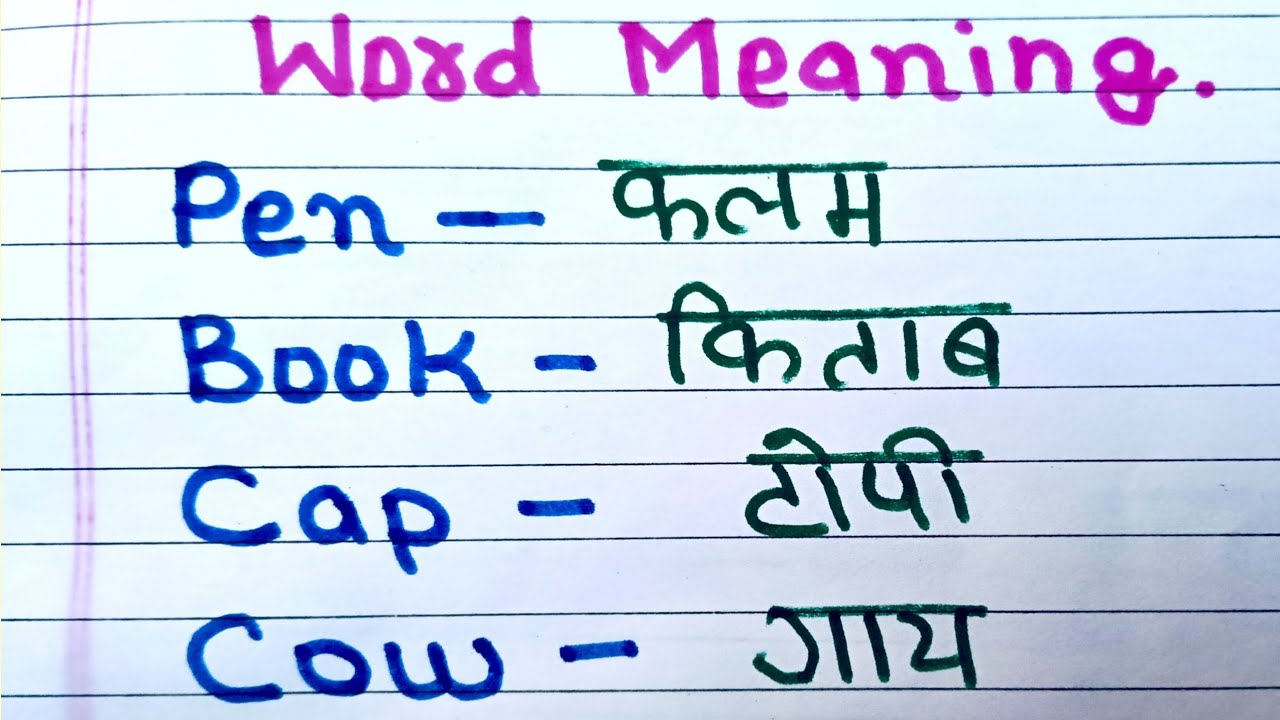 Word Meaning.
Pen – कलम
Book – किताब
Cap – टोपी
Cow – गाय